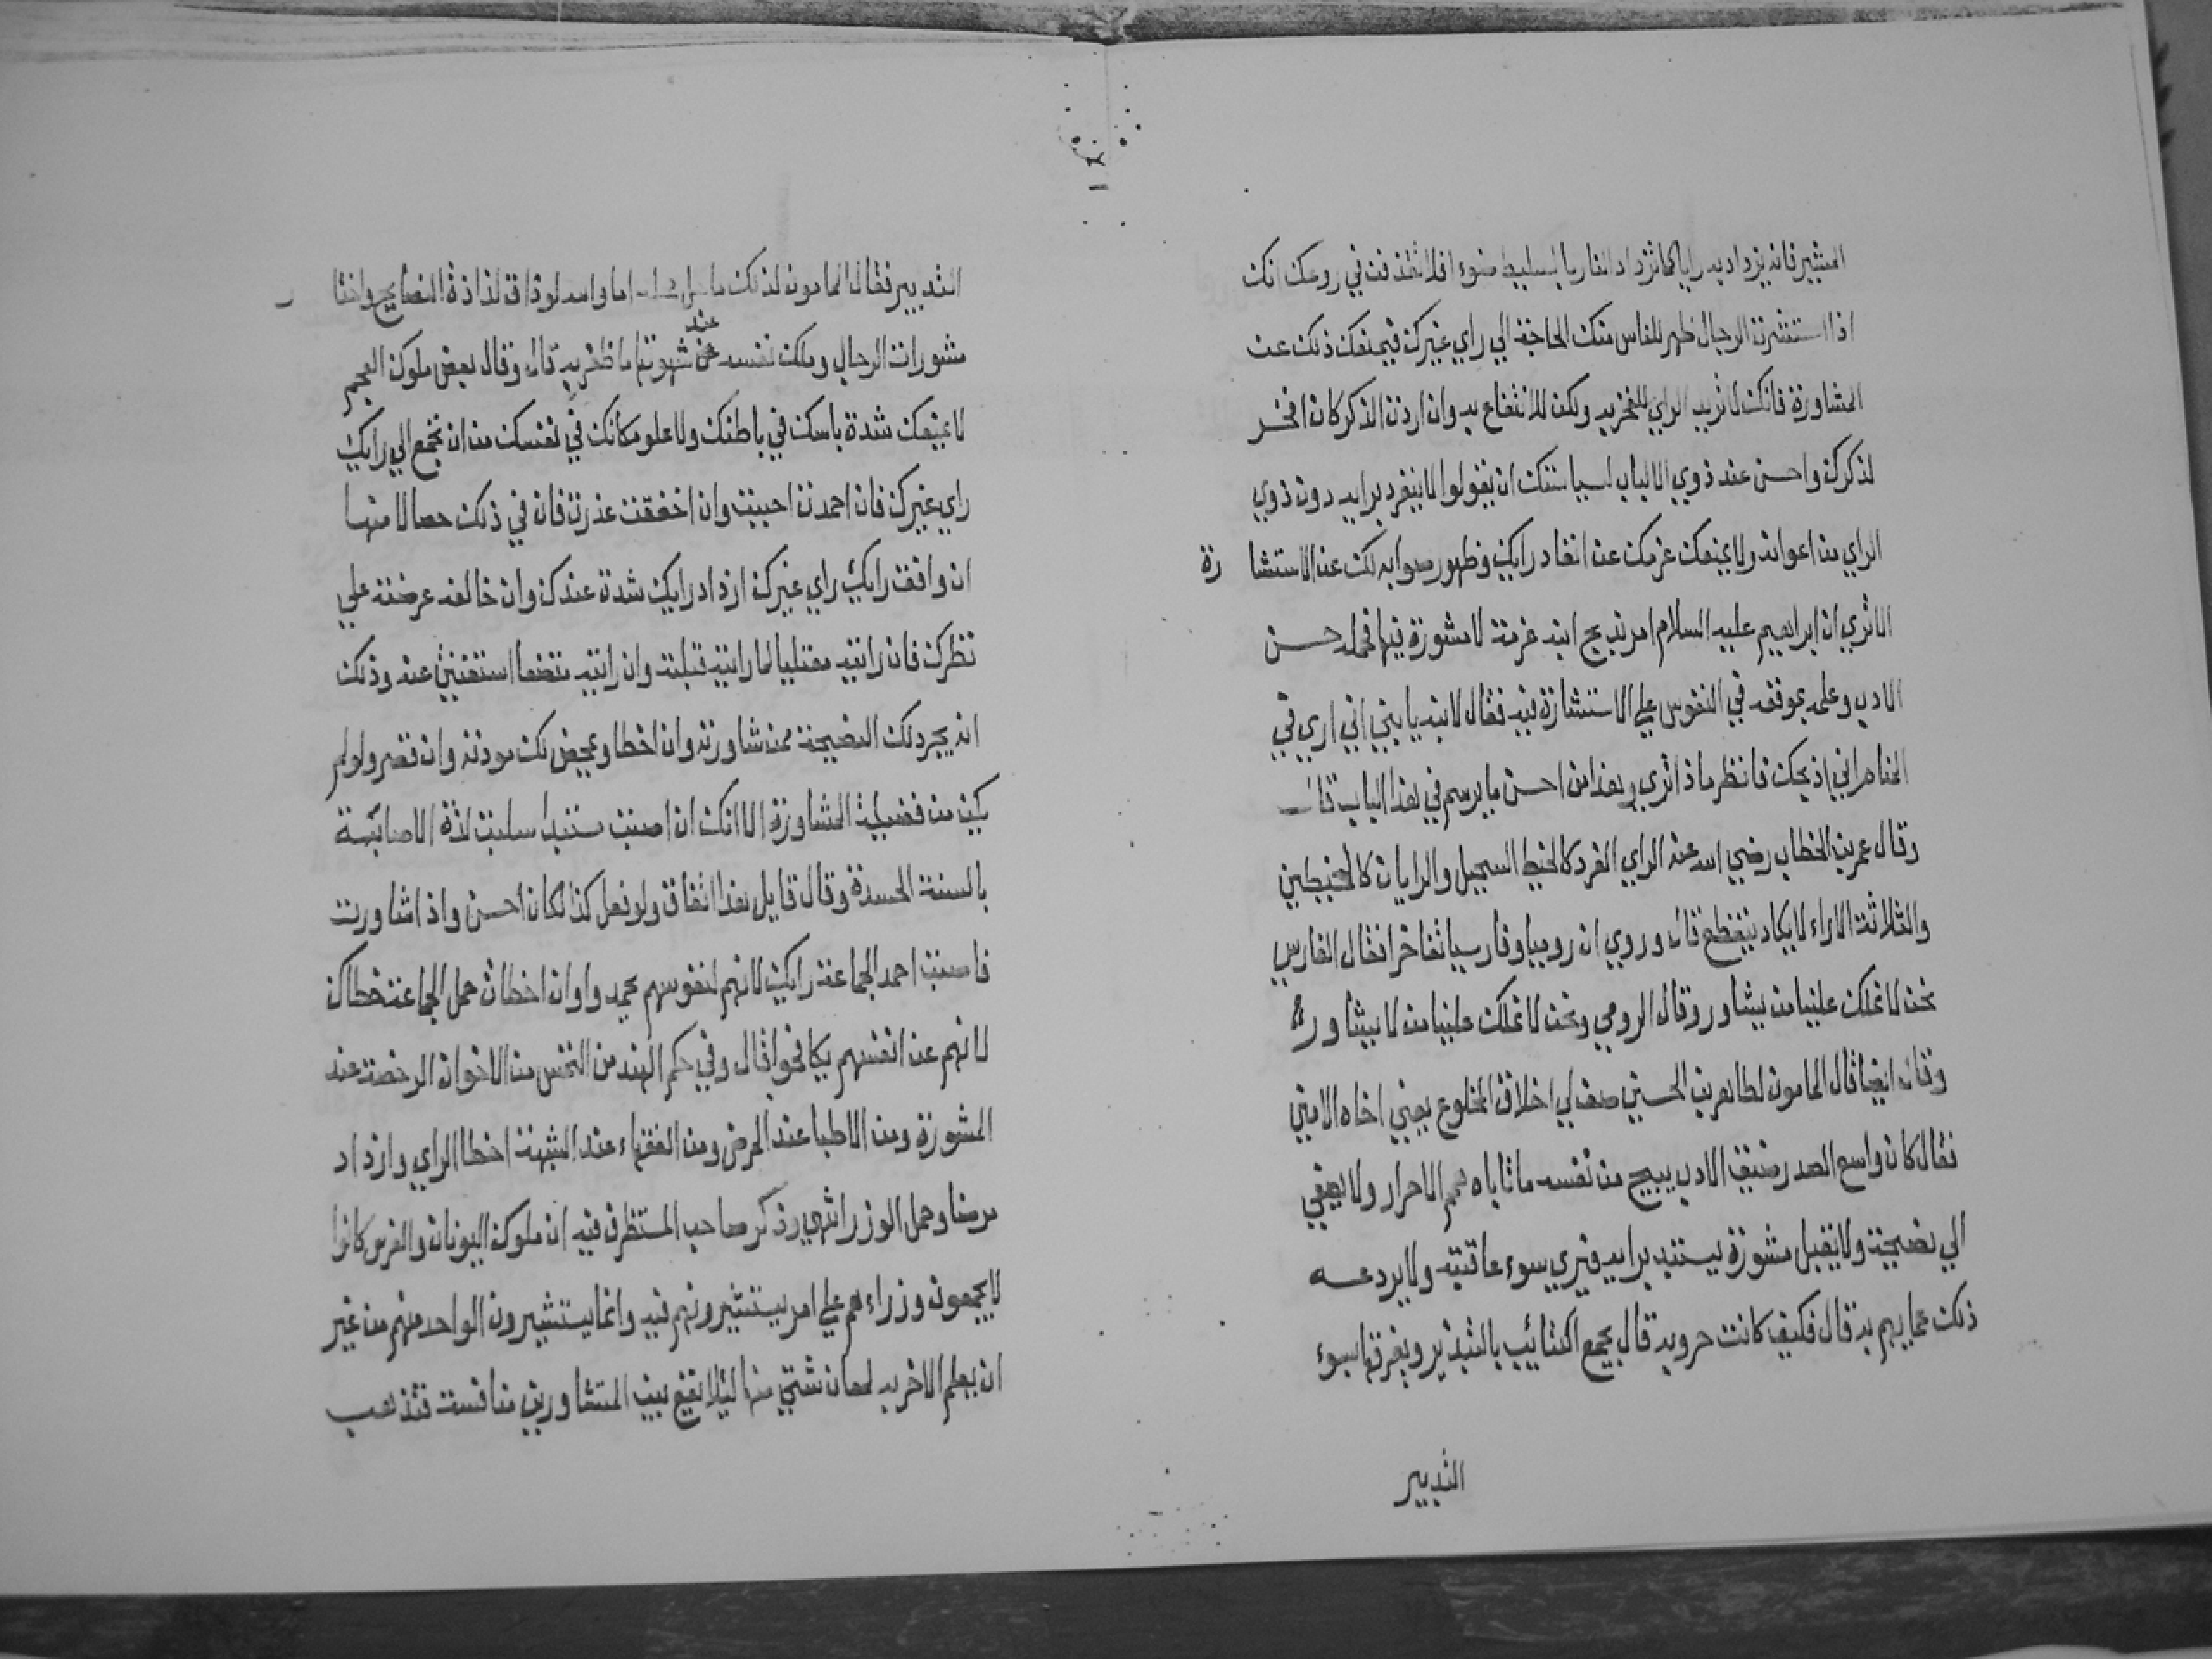 المشير فانه يزداد به رايا كما تزداد النار بالسليط ضوءا فلا تقذفن في روعك انك
اذا استشرت الرجال ظهر للناس منك الحاجة الي راي غيرك فيمنعك ذلك عن
المشاورة فانك لا تريد الراي للفخر به ولكن للانتفاع به وان اردت الذكر كان افخر
لذكرك واحسن عند ذوي الالباب لسياستك ان يقولوا لا ينفرد برايه دون ذوي
الراي من اعوانه ولا يمنعك عزمك عن انفاد رايك وظهور صوابه لك عن الاستشارة
الا تري ان ابراهيم عليه السلام امر بذبح ابنه عزمة لا مشورة فيها فحمله حسن
الادب وعلمه بموقعه في النفوس علي الاستشارة فيه فقال لابنه يا بني اني اري في
المنام اني اذبحك فانظر ماذا تري وهذا من احسن ما يرسم في هذا الباب قال
وقال عمر بن الخطاب رضي الله عنه الراي الفرد كالخيط السحيل والرايان كالخيطين
والثلاثة الاراء لا يكاد ينقطع قال وروي ان روميا وفارسيا تفاخرا فقال الفارس
نحن لا نملك علينا من يشاور وقال الرومي ونحن لا نملك علينا من لا يشاور
وقال ايضا قال المامون لطاهر بن الحسين صف لي اخلاق المخلوع يعني اخاه الامين
فقال كان واسع الصدر ضيق الادب يبيح من نفسه ما تاباه همم الاحرار ولا يصغي
الي نصيحة ولا يقبل مشورة يستبد برايه فيري سوء عاقبته ولا يردعه
ذلك عما يهم به قال فكيف كانت حروبه قال يجمع الكتائب بالتبذير ويفرقها بسوء
التدبير
التدبير فقال المامون لذلك ما حل اما والله لو ذاق لذاذة النصايح واختار
مشورات الرجال وملك نفسه عند شهوتها ما ظفر به قال وقال بعض ملوك العجم
لا يمنعك شدة باسك في باطنك ولا علو مكانك في نفسك من ان تجمع الي رايك
راي غيرك فان احمدت احببت وان اخفقت عذرت فان في ذلك خصالا منها
ان وافق رايك راي غيرك ازداد رايك شدة عندك وان خالفه عرضته علي
نظرك فان رايته معتليا لما رايته قبلته وان رايته متضعا استغنيت عنه وذلك
انه يجرد لك النصيحة ممن شاورته وان اخطا ويمحض لك مودته وان قصر ولو لم
يكن من فضيلة المشاورة الا انك ان اصبت مستبدا سلبت لذة الاصابة
بالسنة الحسدة وقال قايل هذا اتفاق ولو فعل كذا لكان احسن واذا شاورت
فاصبت احمد الجماعة رايك لانهم لنفوسهم يحمدوا وان اخطات حمل الجماعة خطاك
لانهم عن انفسهم يكافحوا قال وفي حكم الهند من التمس من الاخوان الرخصة عند
المشورة ومن الاطبا عند المرض ومن الفقهاء عند الشبهة اخطا الراي وازداد
مرضا وحمل الوزر انتهي وذكر صاحب المستظرف فيه ان ملوك اليونان والفرس كانوا
لا يجمعون وزراءهم علي امر يستشيرونهم فيه وانما يستشيرون الواحد منهم من غير
ان يعلم الاخر به لمعان شتي منها ليلا يقع بين المتشاورين منافسة فتذهب